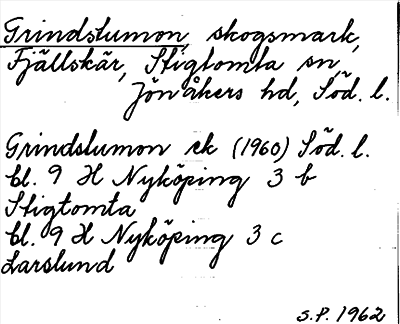 Grindstumon, skogsmark,
Fjällskär, Stigtomta sn,
Jönåkers hd, Söd. l.
Grindslumon ek (1960) Söd. l.
bl. 9 H Nyköping 3 b
Stigtomta
bl. 9 H Nyköping 3 c
Larslund
S.P. 1962